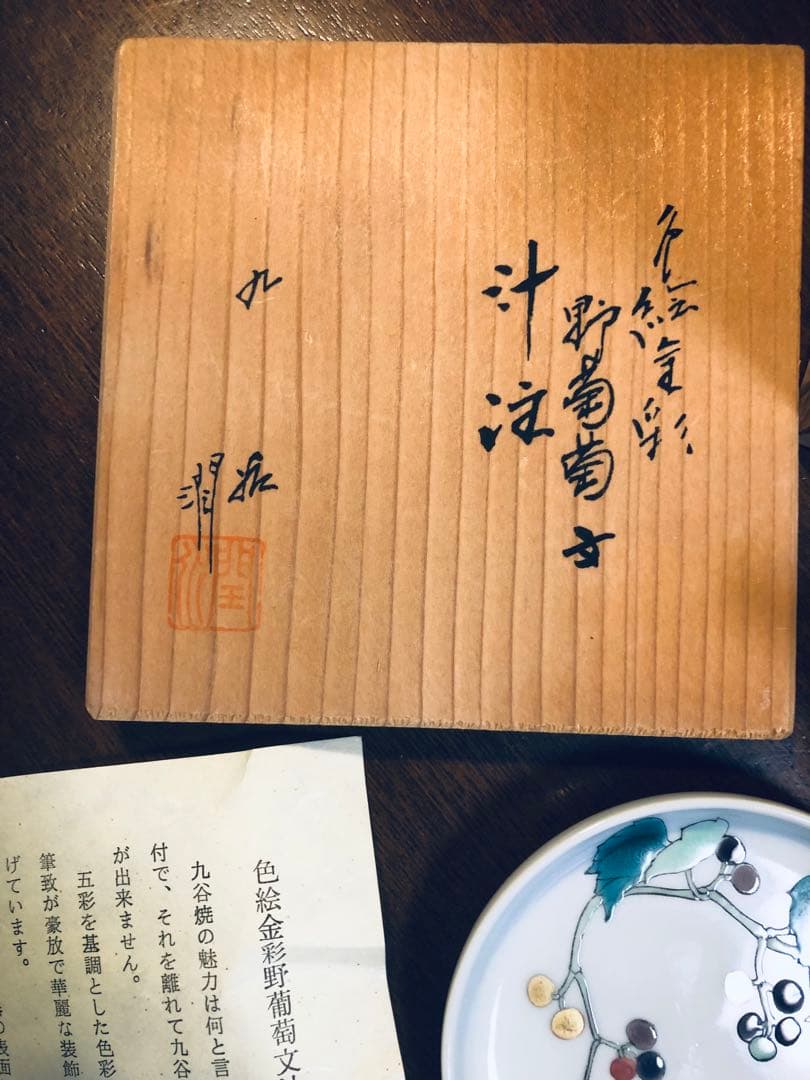 色絵金彩
野葡萄文
汁注
九谷
潤
色絵金彩野葡萄文
九谷焼の魅力は何と言
付で、それを離れて九谷
が出来ません。
五彩を基調とした色彩
筆致が豪放で華麗な装飾
げています。
の表面